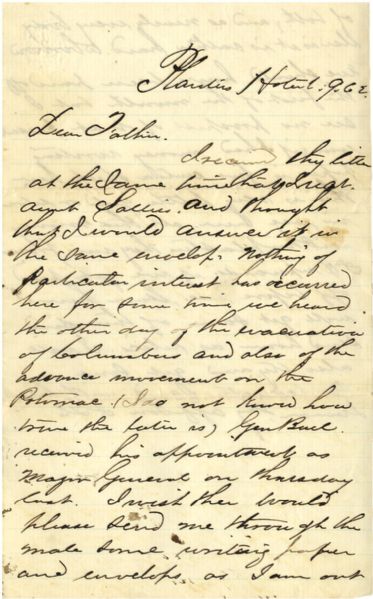 Planters Hotel. 9. 62.
Dear Father.
I received thy letter
at the same time that I recd.
aunt Sallies. and thought
that I would answer it in
the same envelop. Nothing of
particular interest has occurred
here for some time we heard
the other day of the evacuation
of Columbus and also of the
advance movement on the
Potomac (I do not know how
true the later is) Gen Buel.
received his appointment as
Major General on Thursday
last. I wish thee would
please send me through the
male some writing paper
and envelops. as I am out